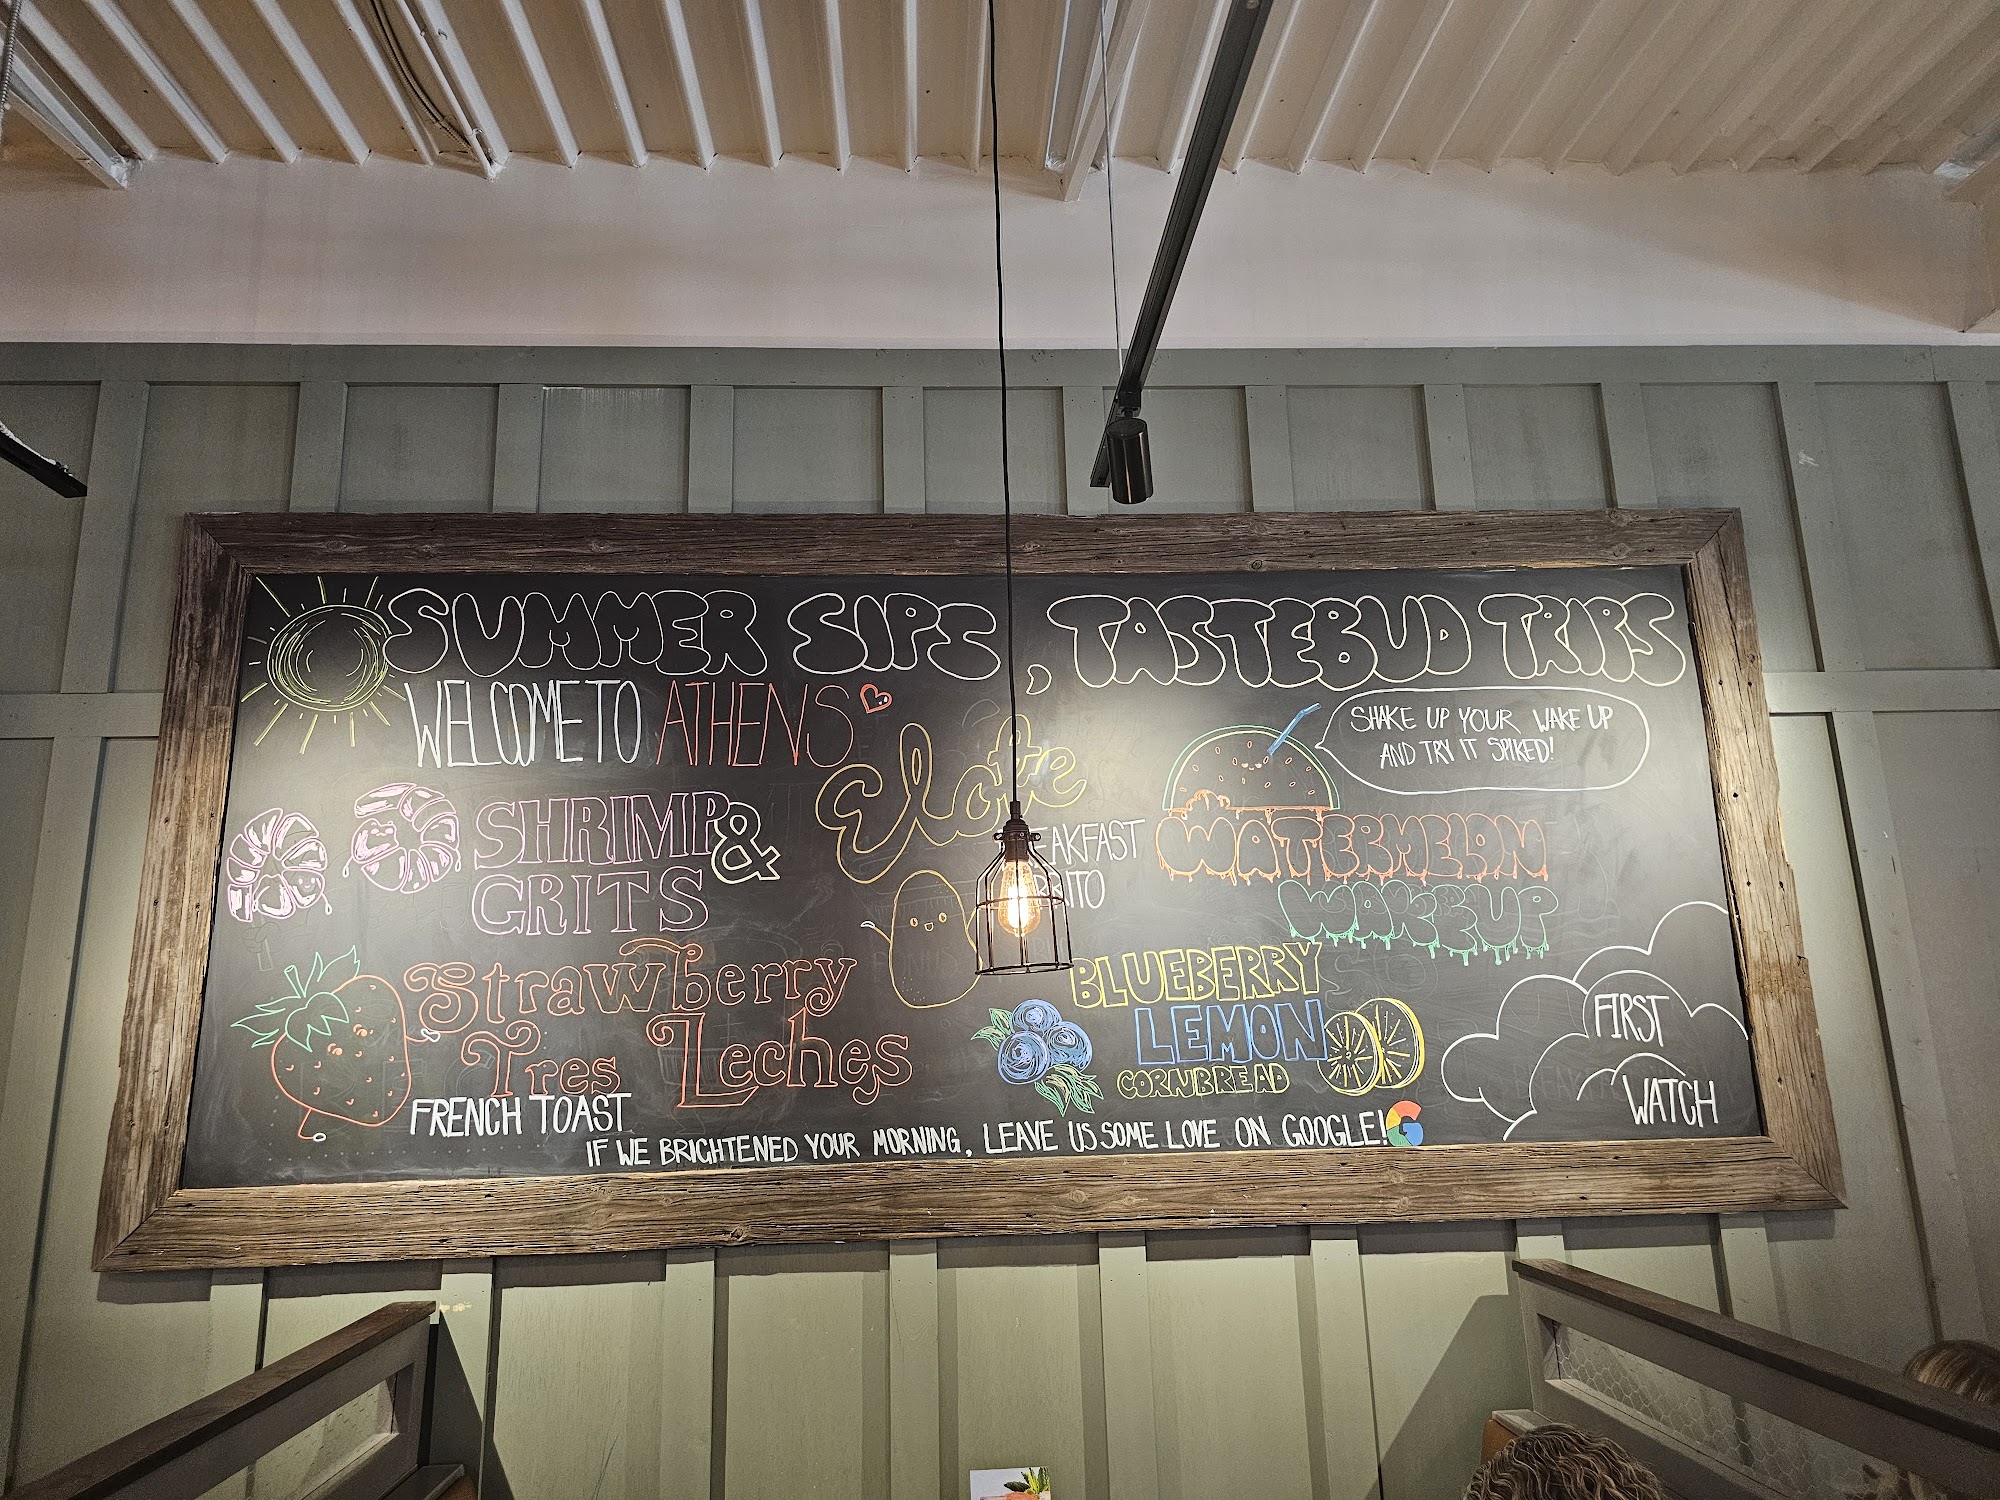 SUMMER SIPS, TASTEBUD TRIPS
WELCOME TO ATHENS
SHRIMP &
GRITS
Strawberry
Tres Leches
FRENCH TOAST
Elote
SHAKE UP YOUR WAKE UP
AND TRY IT SPIKED!
WATERMELON
WAKEUP
BLUEBERRY
LEMON
CORNBREAD
FIRST
WATCH
IF WE BRIGHTENED YOUR MORNING, LEAVE US SOME LOVE ON GOOGLE!
G